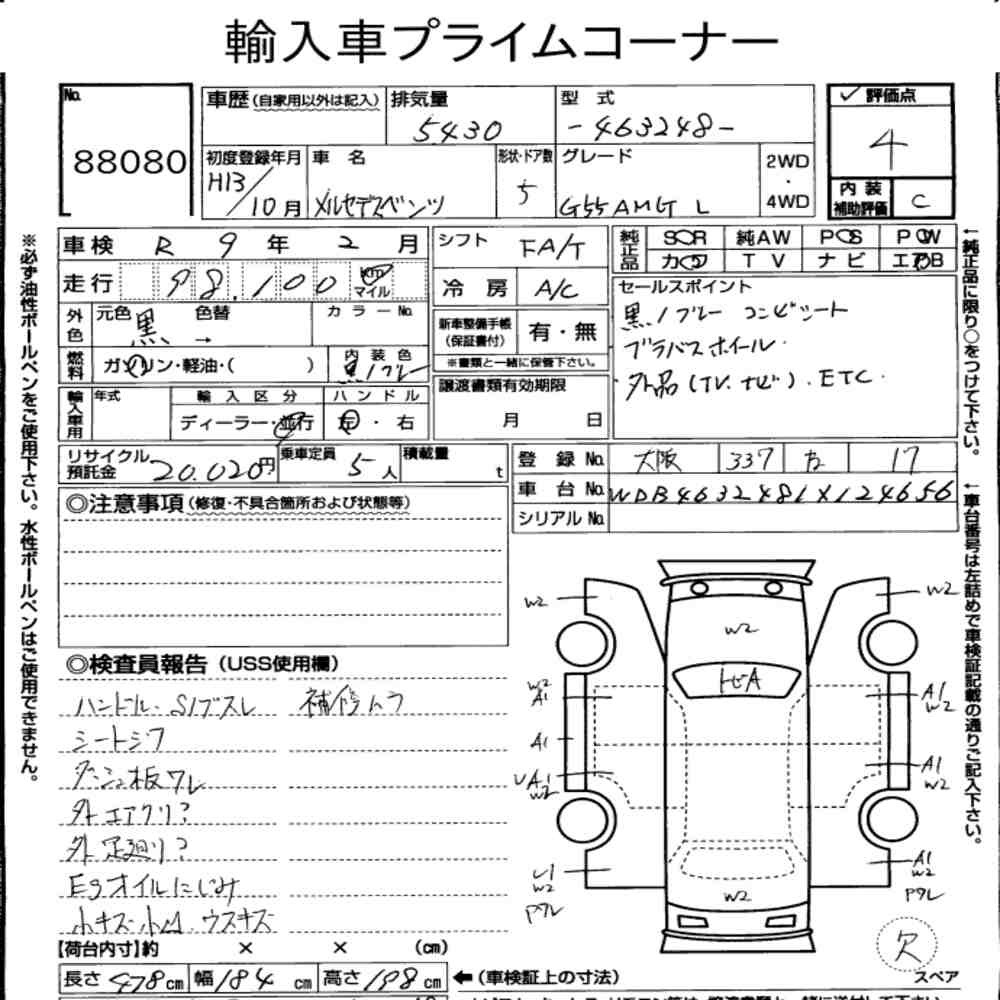 輸入車プライムコーナー
No.
88080
車歴 (自家用以外は記入)
排気量
5430
型 式
-463248-
評価点
4
初度登録年月
H13/10月
車 名
メルセデスベンツ
形状・ドア数
5
グレード
G55AMG L
2WD
・
4WD
内装
補助評価
C
車検 R 9 年 2 月
シフト
FA/T
純正品
SOR 純AW POS POW
カロワ TV ナビ エアB
走行 98.100 km マイル
冷房
A/C
セールスポイント
黒/グレー コンビシート
ブラバスホイール.
外品(TV.ナビ). ETC.
外色
元色 黒 色替 →
カラーNo.
新車整備手帳
(保証書付)
有・無
※書類と一緒に保管下さい。
燃料
ガソリン・軽油・( )
内装色
黒/グレー
譲渡書類有効期限
月 日
輸入車用
年式
輸入区分
ディーラー・並行
ハンドル
左・右
リサイクル
預託金
20.020円
乗車定員
5人
積載量
t
登録No.
大阪 337 17
車台No.
WDB4632481X124656
シリアルNo.
◎注意事項 (修復・不具合箇所および状態等)
◎検査員報告 (USS使用欄)
ハンドル.S1ブスレ 補修ムラ
シートシワ
ダッシュ板ワレ
外エアクリ?
外足廻り?
Egオイルにじみ
小キズ小凹.ウスキズ
W2
W2
W2
トビA
W2
A1
A1
W2
A1
UA1
W2
A1
W2
U1
W2
Pワレ
A1
W2
Pワレ
W2
欠
スペア
【荷台内寸】約 × × (cm)
長さ 478cm 幅 184cm 高さ 198cm
←(車検証上の寸法)
※必ず油性ボールペンをご使用下さい。水性ボールペンはご使用できません。
←純正品に限り○をつけて下さい。
←車台番号は左詰めで車検証記載の通りご記入下さい。